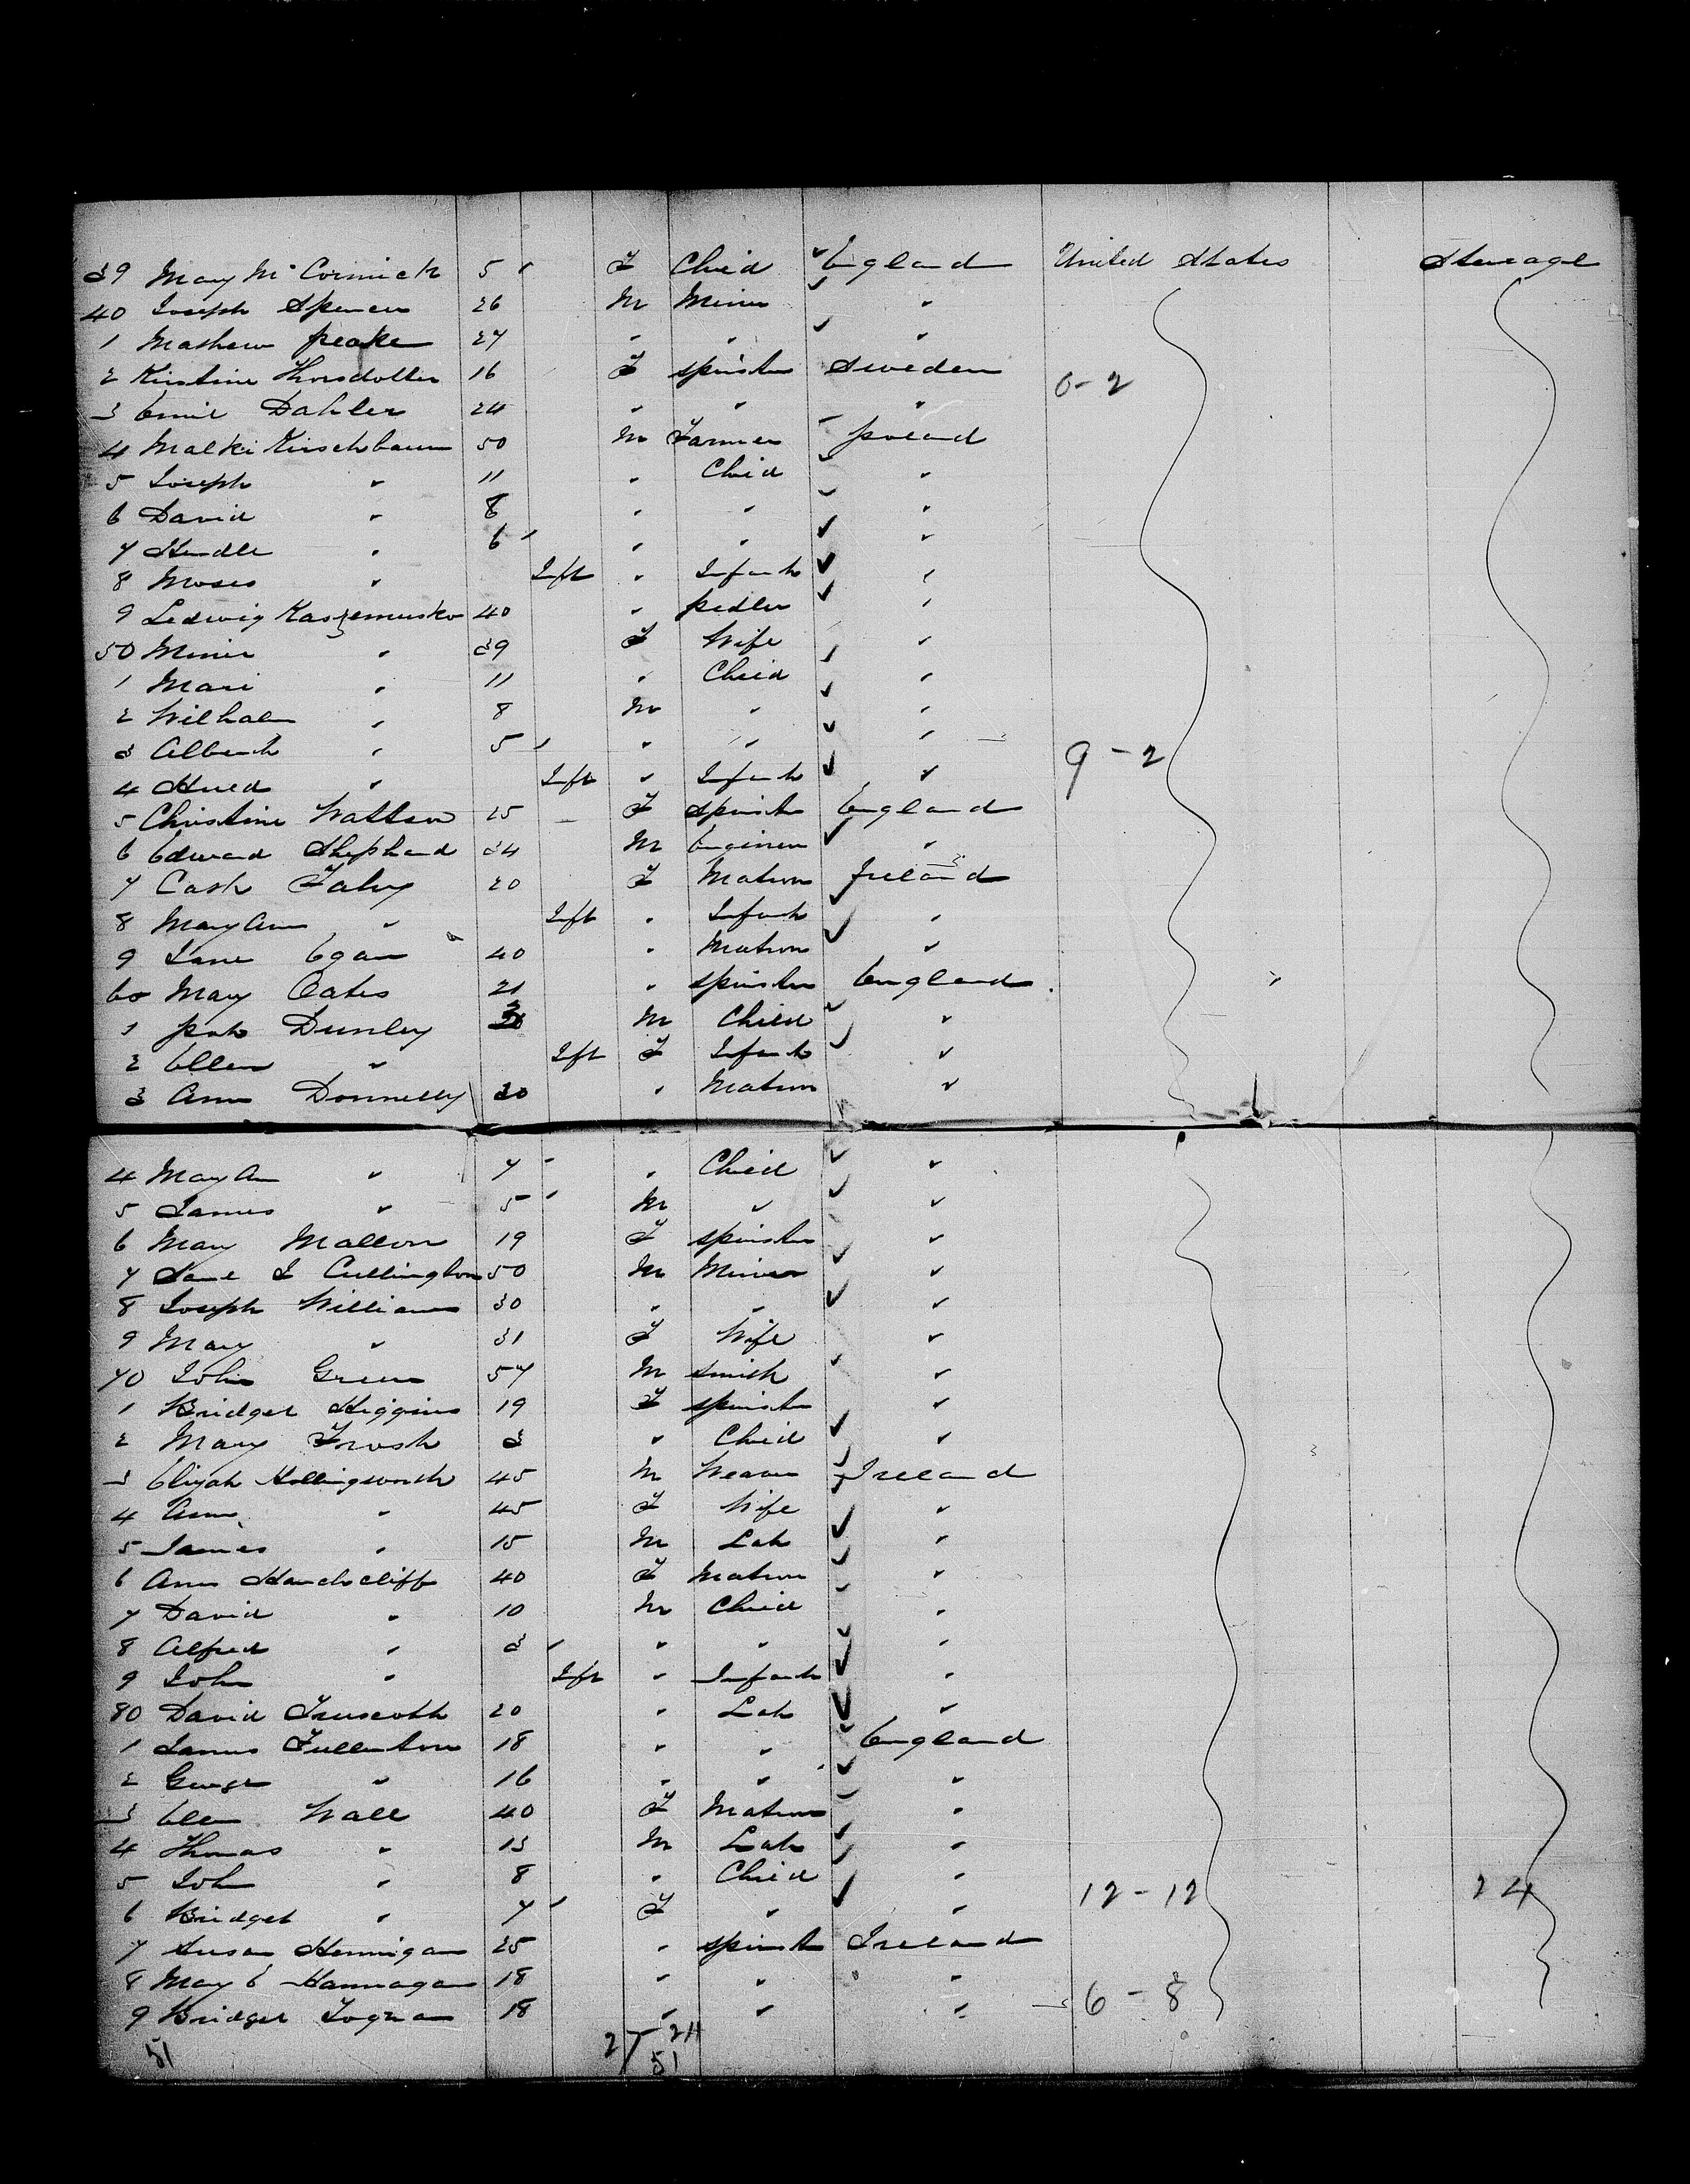 39 Mary McCormick 5 F Child England United States Steerage
40 Joseph Spencer 26 M Miner "
1 Mathew Peake 27 " " "
2 Kirstine Thorsdotter 16 F Spinster Sweden 0-2
3 Emil Dahler 24 " " "
4 Malki Kirschbaum 50 M Farmer Poland
5 Joseph " 11 " Child "
6 David " 8 " " "
7 Hendle " 6 " " "
8 Moses " Inft " Infant "
9 Ledwig Kaszemusko 40 " pedler "
50 Minie " 39 F Wife "
1 Mari " 11 " Child "
2 Wilhalm " 8 M " "
3 Albert " 5 " " " 9-2
4 " Inft " Infant "
5 Christine Wattson 25 F Spinster England
6 Edward Shephard 34 M Engineer "
7 Cath Fahy 20 F Matron Ireland
8 Mary Ann " Inft " Infant "
9 Jane Egan 40 " Matron "
60 Mary Oates 21 " Spinster England
1 Pat Dunley 3 M Child "
2 Ellen " Inft F Infant "
3 Ann Donnelly 30 " Matron "
4 Mary An " 7 " Child "
5 James " 5 M " "
6 Mary Mallon 19 F Spinster "
7 J Cullington 50 M Miner "
8 Joseph Williams 30 " " "
9 Mary " 31 F Wife "
70 John Green 57 M Smith "
1 Bridget Higgins 19 F Spinster "
2 Mary Frosh 3 " Child "
3 Elijah Hollingsworth 45 M Weaver Ireland
4 Ann " 45 F Wife "
5 James " 15 M Lab "
6 Ann Handscliff 40 F Matron "
7 David " 10 M Child "
8 Alfred " 3 " " "
9 John " Inft " Infant "
80 David Truscoth 20 " Lab "
1 James Fullerton 18 " " England
2 George " 16 " " "
3 Ellen Wall 40 F Matron "
4 Thomas " 13 M Lab "
5 John " 8 " Child " 12-12 24
6 Bridget " 7 F " "
7 Susan Hennigan 25 " Spinster Ireland
8 Mary E Hannagan 18 " " "
9 Bridget 18 " " " 6-8
51 27-24
51